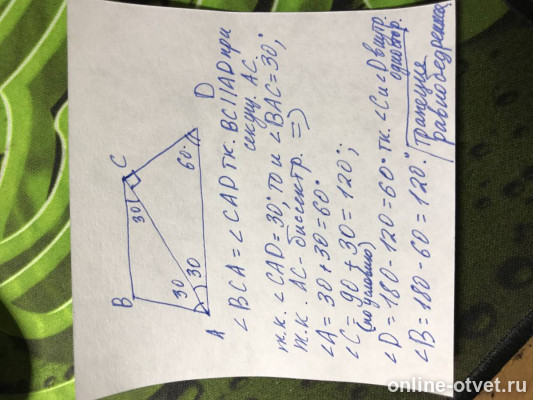 B
C
30
30
30
60°
A
D
∠BCA = ∠CAD т.к. BC||AD при
секущ. AC.
т.к. ∠CAD = 30°, то и ∠BAC = 30°,
т.к. AC - биссектр. =>
∠A = 30 + 30 = 60°
∠C = 90 + 30 = 120°;
(по условию)
∠D = 180 - 120 = 60° т.к. ∠C и ∠D внутр.
одностор.
∠B = 180 - 60 = 120°.
трапеция
равнобедренная
online-otvet.ru